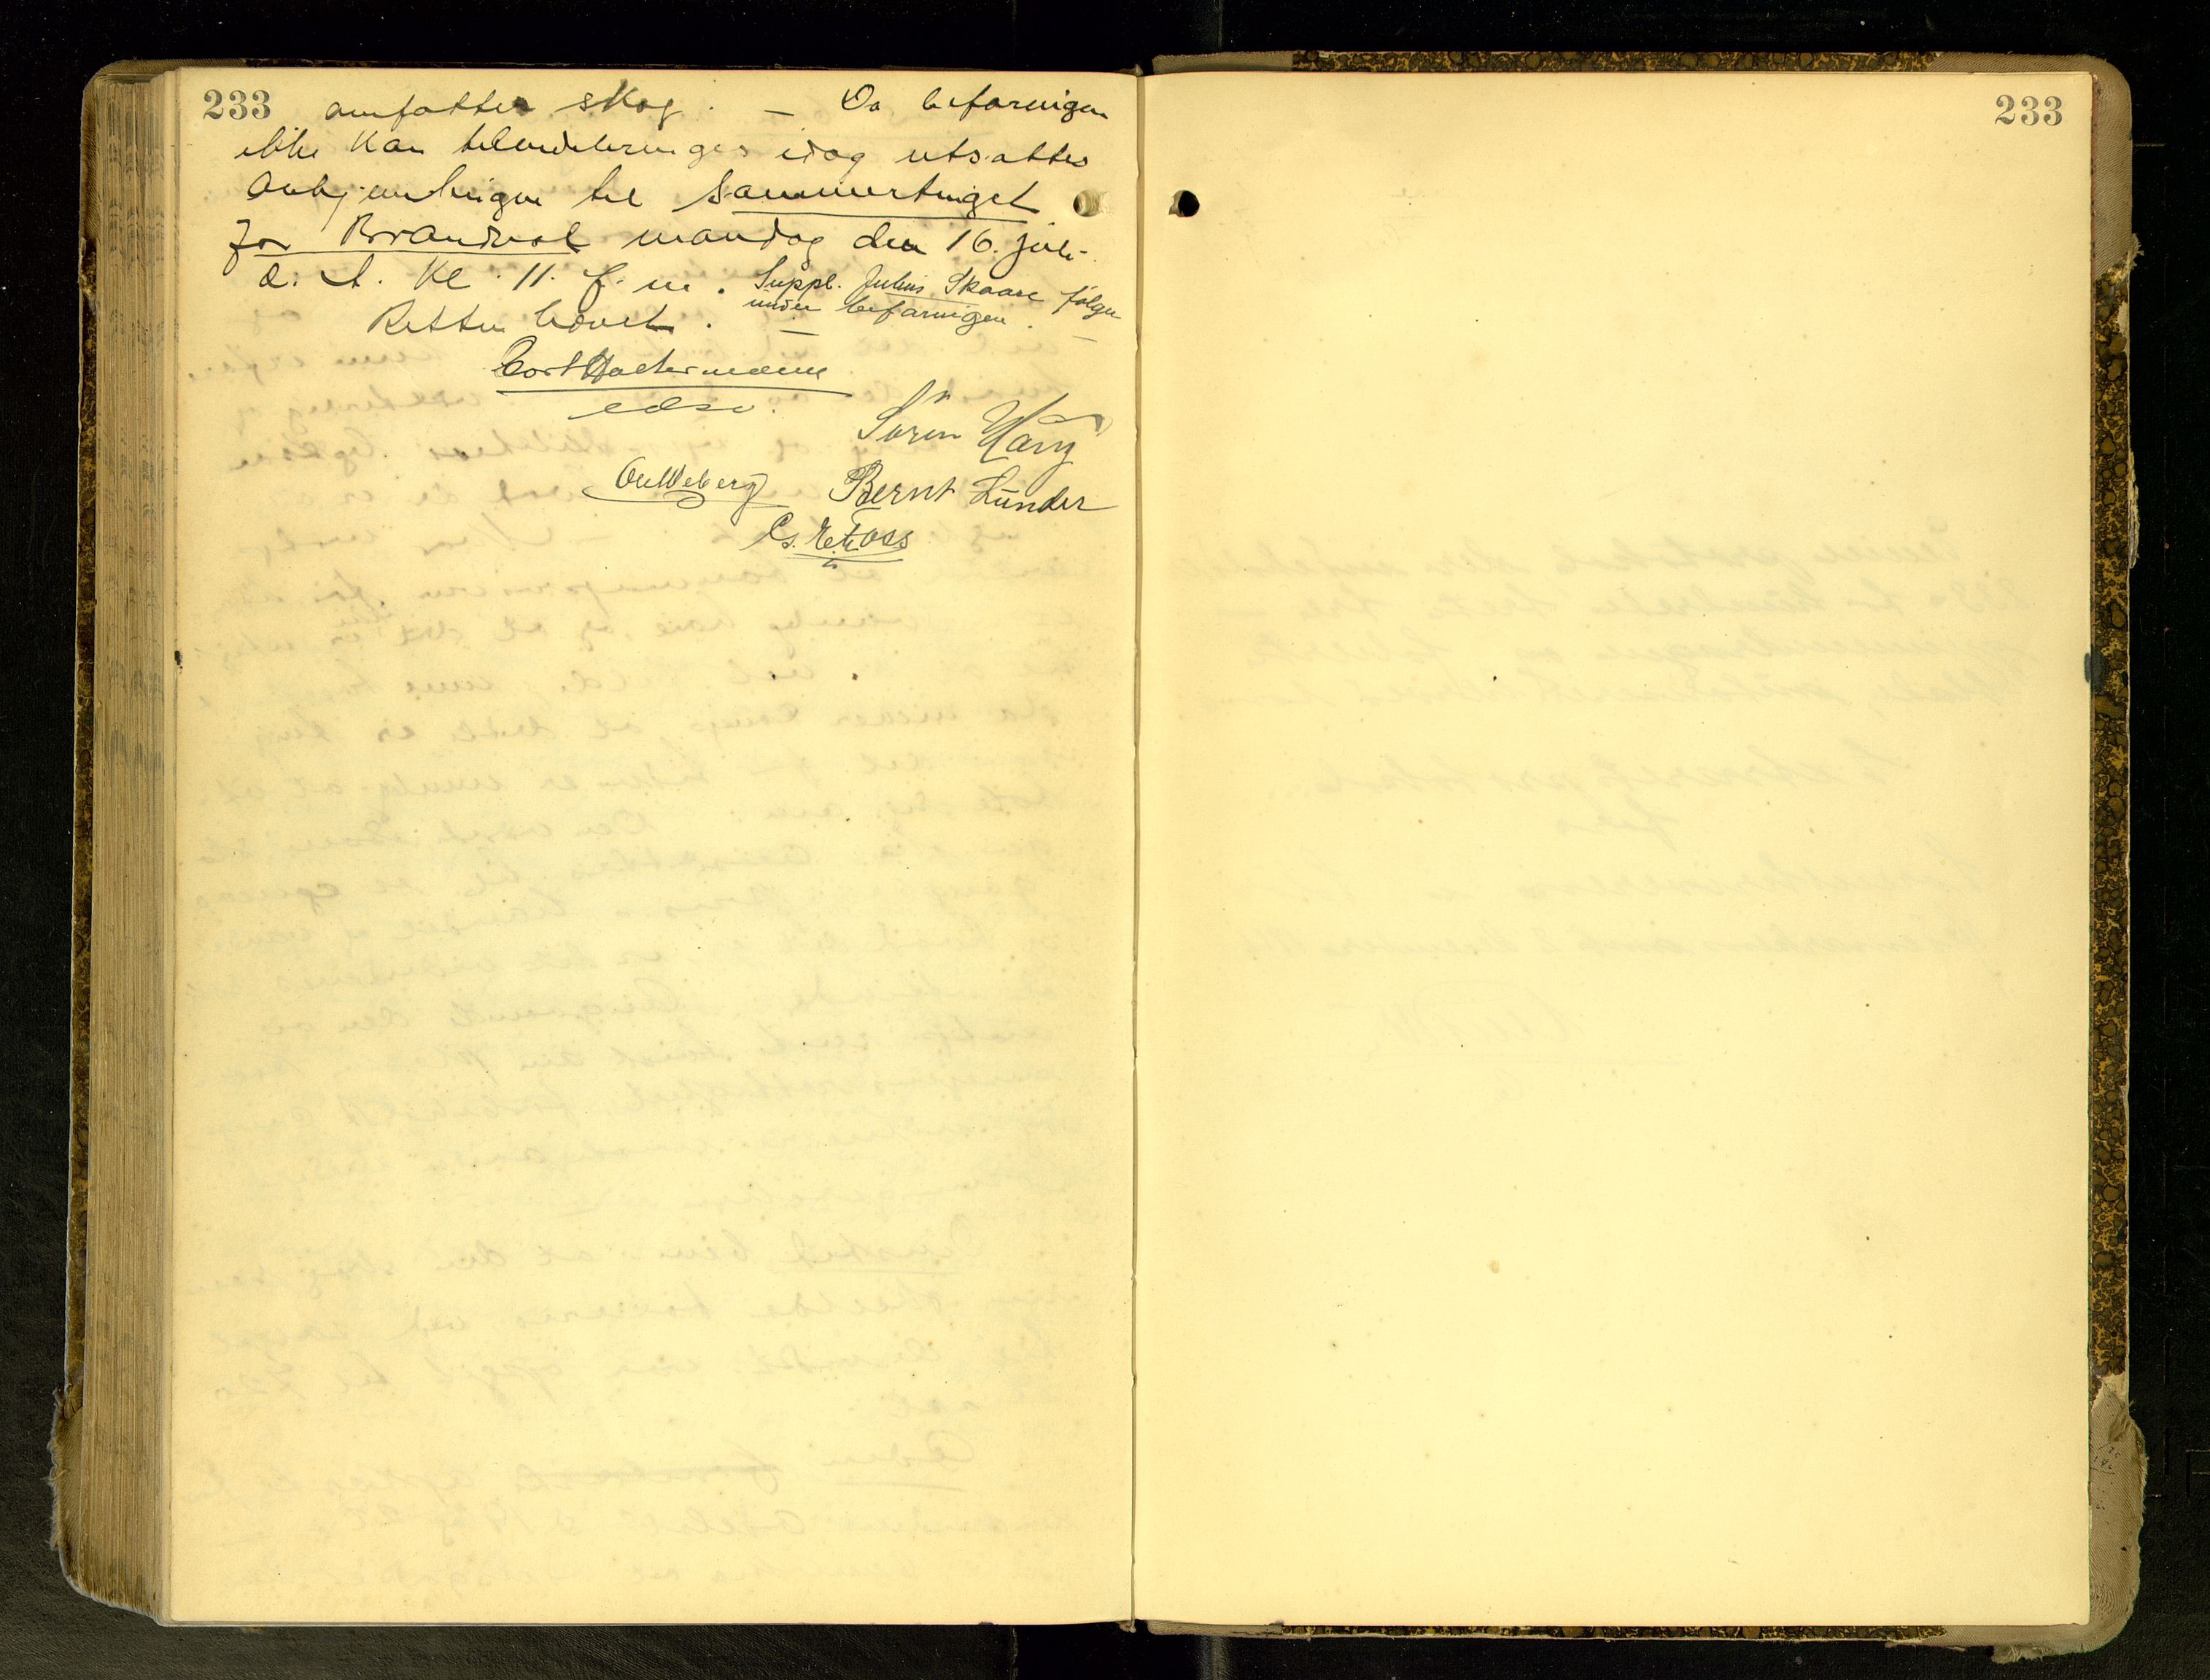 233 omfatter skog. — Da befaringen
ikke kan tilendebringes idag utsattes
avhjemlingen til sommertinget
for Brandval mandag den 16. juli
d. A. Kl. 11. f. m. Suppl. Julius Skaare følger
under befaringen. —
Retten hævet. —
Cort Holtermann
edsv.
Søren
Ole Weberg Bernt Lunder
Foss
233